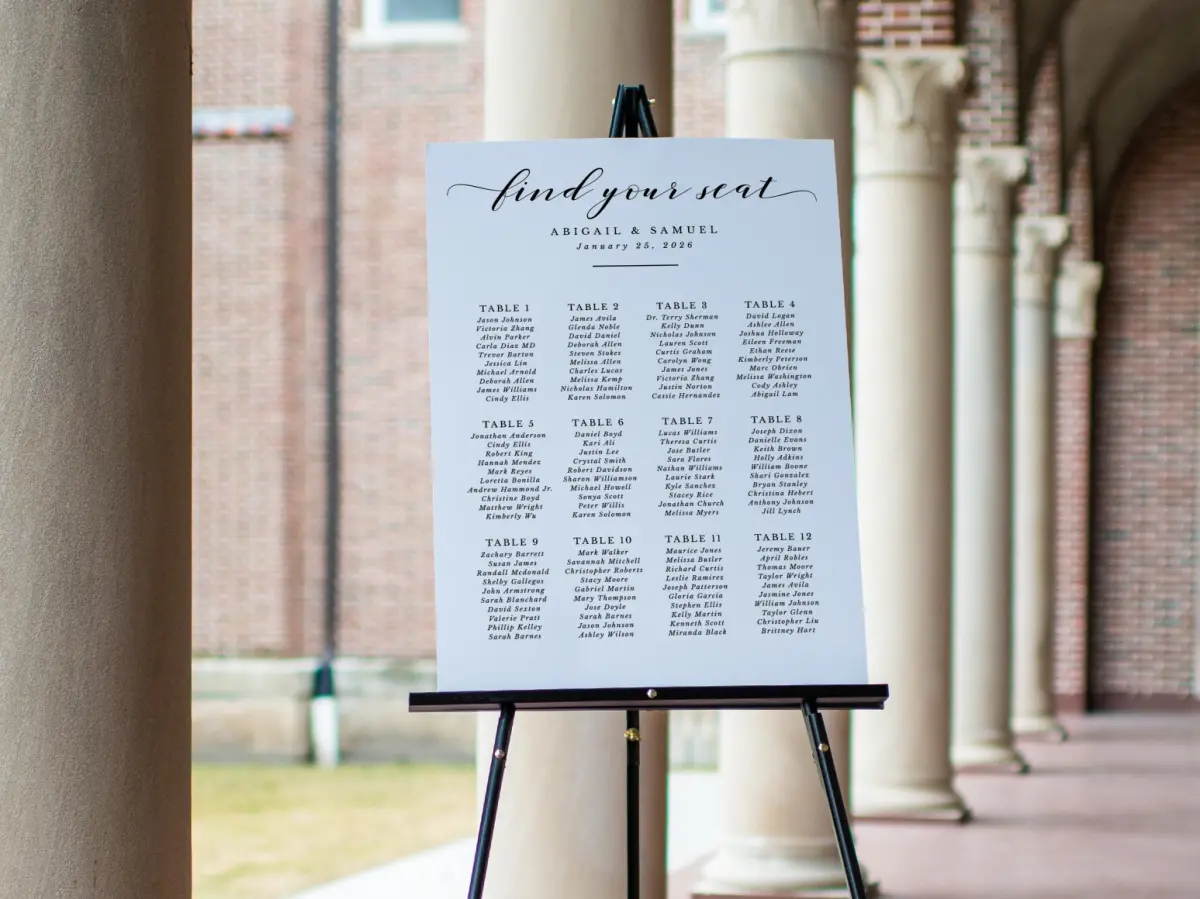 find your seat
ABIGAIL & SAMUEL
January 25, 2026
TABLE 1
Jason Johnson
Victoria Zhang
Alvin Parker
Carla Diaz MD
Trevor Barton
Jessica Lin
Michael Arnold
Deborah Allen
James Williams
Cindy Ellis
TABLE 2
James Avila
Glenda Noble
David Daniel
Deborah Allen
Steven Stokes
Melissa Allen
Charles Lucas
Melissa Kemp
Nicholas Hamilton
Karen Solomon
TABLE 3
Dr. Terry Sherman
Kelly Dunn
Nicholas Johnson
Lauren Scott
Curtis Graham
Carolyn Wong
James Jones
Victoria Zhang
Justin Norton
Cassie Hernandez
TABLE 4
David Logan
Ashlee Allen
Joshua Holloway
Eileen Freeman
Ethan Reese
Kimberly Peterson
Marc Obrien
Melissa Washington
Cody Ashley
Abigail Lam
TABLE 5
Jonathan Anderson
Cindy Ellis
Robert King
Hannah Mendez
Mark Reyes
Loretta Bonilla
Andrew Hammond Jr.
Christine Boyd
Matthew Wright
Kimberly Wu
TABLE 6
Daniel Boyd
Kari Ali
Justin Lee
Crystal Smith
Robert Davidson
Sharon Williamson
Michael Howell
Sonya Scott
Peter Willis
Karen Solomon
TABLE 7
Lucas Williams
Theresa Curtis
Jose Butler
Sara Flores
Nathan Williams
Laurie Stark
Kyle Sanchez
Stacey Rice
Jonathan Church
Melissa Myers
TABLE 8
Joseph Dixon
Danielle Evans
Keith Brown
Holly Adkins
William Boone
Shari Gonzalez
Bryan Stanley
Christina Hebert
Anthony Johnson
Jill Lynch
TABLE 9
Zachary Barrett
Susan James
Randall Mcdonald
Shelby Gallegos
John Armstrong
Sarah Blanchard
David Sexton
Valerie Pratt
Phillip Kelley
Sarah Barnes
TABLE 10
Mark Walker
Savannah Mitchell
Christopher Roberts
Stacy Moore
Gabriel Martin
Mary Thompson
Jose Doyle
Sarah Barnes
Jason Johnson
Ashley Wilson
TABLE 11
Maurice Jones
Melissa Butler
Richard Curtis
Leslie Ramirez
Joseph Patterson
Gloria Garcia
Stephen Ellis
Kelly Martin
Kenneth Scott
Miranda Black
TABLE 12
Jeremy Bauer
April Robles
Thomas Moore
Taylor Wright
James Avila
Jasmine Jones
William Johnson
Taylor Glenn
Christopher Liu
Brittney Hart